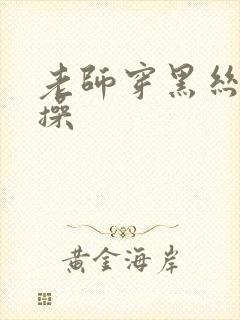 老師穿黑絲
操
黃金海岸